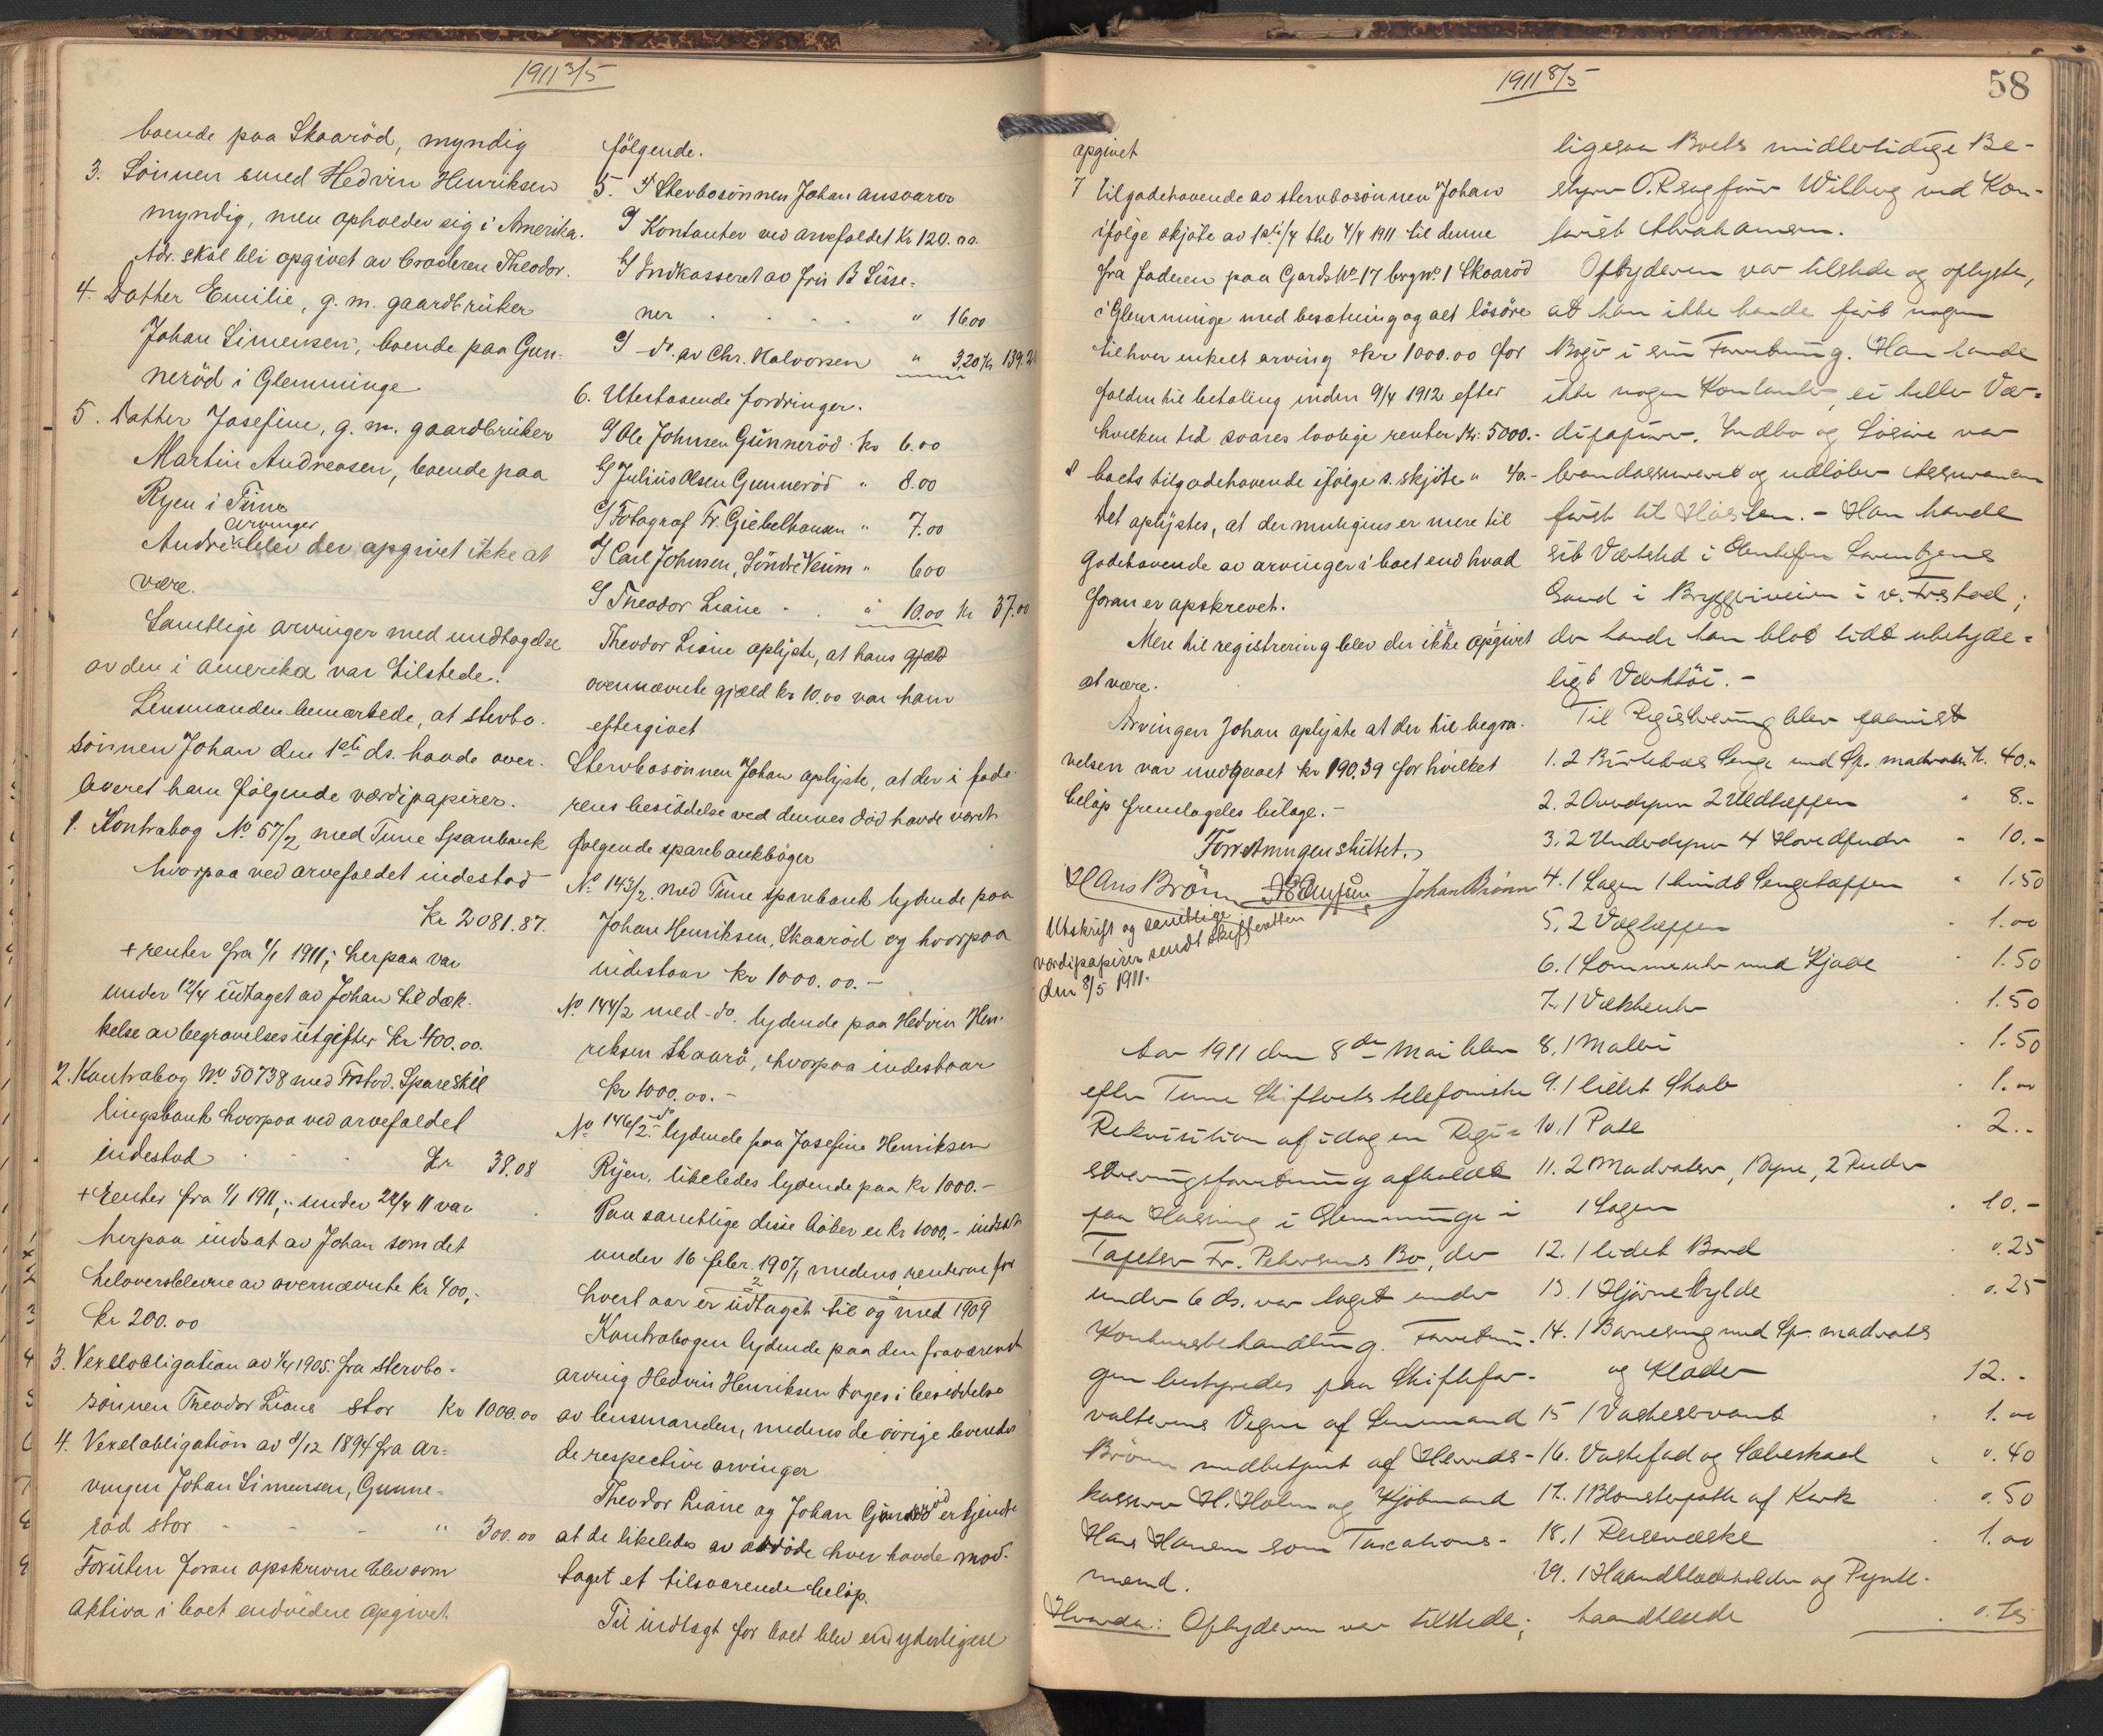 1911 3/5
boende paa Skaaröd, myndig
3. Sönnen smed Hedvin Henriksen
myndig, men opholder sig i Amerika.
Adr. skal bli opgivet av broderen Theodor.
4. Datter Emilie, g. m. gaardbrüker
Johan Simensen, boende paa Gun-
neröd i Glemminge
5. Datter Josefine, g. m. gaardbrüker
Martin Andreasen, boende paa
Ryen i Tüne
arvinger
Andre blev der opgivet ikke at
være.
Samtlige arvinger med undtagelse
av den i Amerika var tilstede.
Lensmanden bemærkede, at stervbo-
sönnen Johan den 1ste ds. havde over-
leveret ham följgende værdipapirer.
1. Kontrabog No 57/2 med Tune Sparebank
hvorpaa ved arvefaldet indestod
Kr 2081.87.
+ renter fra 1/1 1911; herpaa var
under 12/4 üdtaget av Johan til dæk-
kelse av begravelsesütgifter kr 400.00.
2. Kontrabog No 50738 med Frstad. Spareskil
lingsbank hvorpaa ved arvefaldet
indestod . . . kr 38.08
+ renter fra 1/1 1911; under 22/4 11 var
herpaa indsat av Johan som det
beloversblevne av overnævnte kr 400,-
kr 200.00
3. Vexelobligation av 1/4 1905 fra stervbo-
sönnen Theodor Liane stor kr 1000.00
4. Vexelobligation av 8/12 1894 fra ar-
vingen Johan Simensen, Gunne-
röd stor - - - " 300.00
Foruten foran opskrevne blev som
Aktiva i boet endvidere opgivet
følgende.
5. I Stervbosönnen Johan ansvarer
I Kontanter ved arvefaldet kr 120.00.
I Indkasseret av Frü B Lisse-
ner . . . . " 16 00
I do. av Chr. Halvorsen " 3,20 Kr 139.20
6. Utestaaende fordringer.
I Ole Johnsen Günneröd . kr 6.00
I Julius Olsen Gunneröd " 8.00
I Fotograf Fr. Giebelhausen " 7.00
I Carl Johnsen, Söndre Veum " 600
I Theodor Liane . . " 10.00 kr 37.00
Theodor Liane oplyste, at hans gjæld
overnævnte gjæld kr 10.00 var ham
eftergivet
Stervbosönnen Johan oplyste, at der i fade-
rens besiddelse ved dennes död havde været
følgende sparebankböger
No 143/2. med Tüne sparebank lydende paa
Johan Henriksen, Skaaröd og hvorpaa
indestaar kr 1000.00.-
No 144/2 med -do. lydende paa Hedvin Hen-
riksen Skaarö, hvorpaa indestaar
kr 1000.00.-
No 146/2. -do- lydende paa Josefine Henriksen
Ryen, likeledes lydende paa kr 1000.-
Paa samtlige disse böker er kr 1000,- indsat
under 16 febr. 1907, medens renterne for
hvert aar er üdtaget til og med 1909
Kontrabogen lydende paa den fraværende
arving Hedvin Henriksen toges i besiddelse
av lensmanden, medens de övrige leveredes
de respective arvinger
Theodor Liane og Johan Günneröd erkjendte
at de likeledes av avdöde hver havde mod-
taget et tilsvarende belöp.
Til indtægt for boet blev end yderligere
1911 8/5
58
opgivet
7 Tilgodehavende av stervbosönnen Johan
ifölge skjöte av 1ste/4 thl 4/4 1911 til denne
fra faderen paa Gards No 17 brg No 1 Skaaröd
i Glemminge med besætning og alt lösöre
til hver enkelt arving kr 1000.00 for
falden til betaling inden 9/4 1912 efter
hvilken tid svares lovlige renter kr: 5000.-
8 boets tilgodehavende ifölge s. skjöte " 40.-
Det oplystes, at der muligens er mere til
godehavende av arvinger i boet end hvad
foran er opskrevet.
Mere til registrering blev der ikke opgivet
at være.
Arvingen Johan oplyste at der til begra-
velsen var medgaaet kr 190.39 for hvilket
belöp fremlagdes bilage.-
Forretningen sluttet.
Hans Brönn Johan Brönn
Utskrift og samtlige
værdipapirer sendt skifteretten
den 8/5 1911.
Aar 1911 den 8de Mai blev
efter Tune Skifterets telefoniske
Rekvisition af idag en Regi-
streringsforretning afholdt
paa Haasing i Glemminge i
Tapetser Fr. Petersens Bo, der
under 6 ds. var taget under
Konkursbehandling. Forretnin-
gen bestyredes paa Skiftefor-
valterens Vegne af Lensmand
Brönn medbetjent af Herreds-
kasserer H. Holm og Kjöbmand
Hans Hansen som Taxations-
mænd.
Hvorda: Opbyderen var tilstede,
ligesaa Boets midlertidige Be-
styrer O.R sagförer Wilberg ved Kon-
torist Abrahamsen.
Opbyderen var tilstede og oplyste,
at han ikke havde fört nogen
Böger i sin Forretning. Han havde
ikke nogen Kontanter, ei heller Vær-
dipapirer. Indbo og Lösöre var
brandassureret og udlöber Assurancen
först til Hösten. - Han havde
sit Værksted i Lorentzens
Gaard i Bryggeriveien i v. Frstad;
der havde han blot lidt ubetyde-
ligt Værktöi. -
Til Registrering blev paavist
1. 2 Birkebus Senge med Sp. madrats kr. 40.-
2. 2 Overdyner 2 Uldtæpper " 8.-
3. 2 Underdyner 4 Hovedpuder " 10.-
4. 1 Lagen 1 hvidt Sengetæppe " 1.50
5. 2 Vægtæpper . 1.00
6. 1 Lommeuhr med Kjæde . 1.50
7. 1 Vækkeuhr . 1.50
8. 1 Maleri . 1.50
9. 1 lidet Skab . 1.00
10. 1 Pult . 2.-
11. 2 Madratser, 1 Dyne, 2 Puder
1 Lagen . 10.-
12. 1 lidet Bord . 0.25
13. 1 Hjörnehylde . 0.25
14. 1 Barneseng med Sp. madrats
og Klæder 12.-
15 1 Vaskeservant . 1.00
16. Vaskefad og Sæbeskaal " 0.40
17. 1 Blomsterpotte af Kork . 0.50
18. 1 Reisevæske . 1.00
19. 1 Haandklædeholder og Pynte-
haandklæde